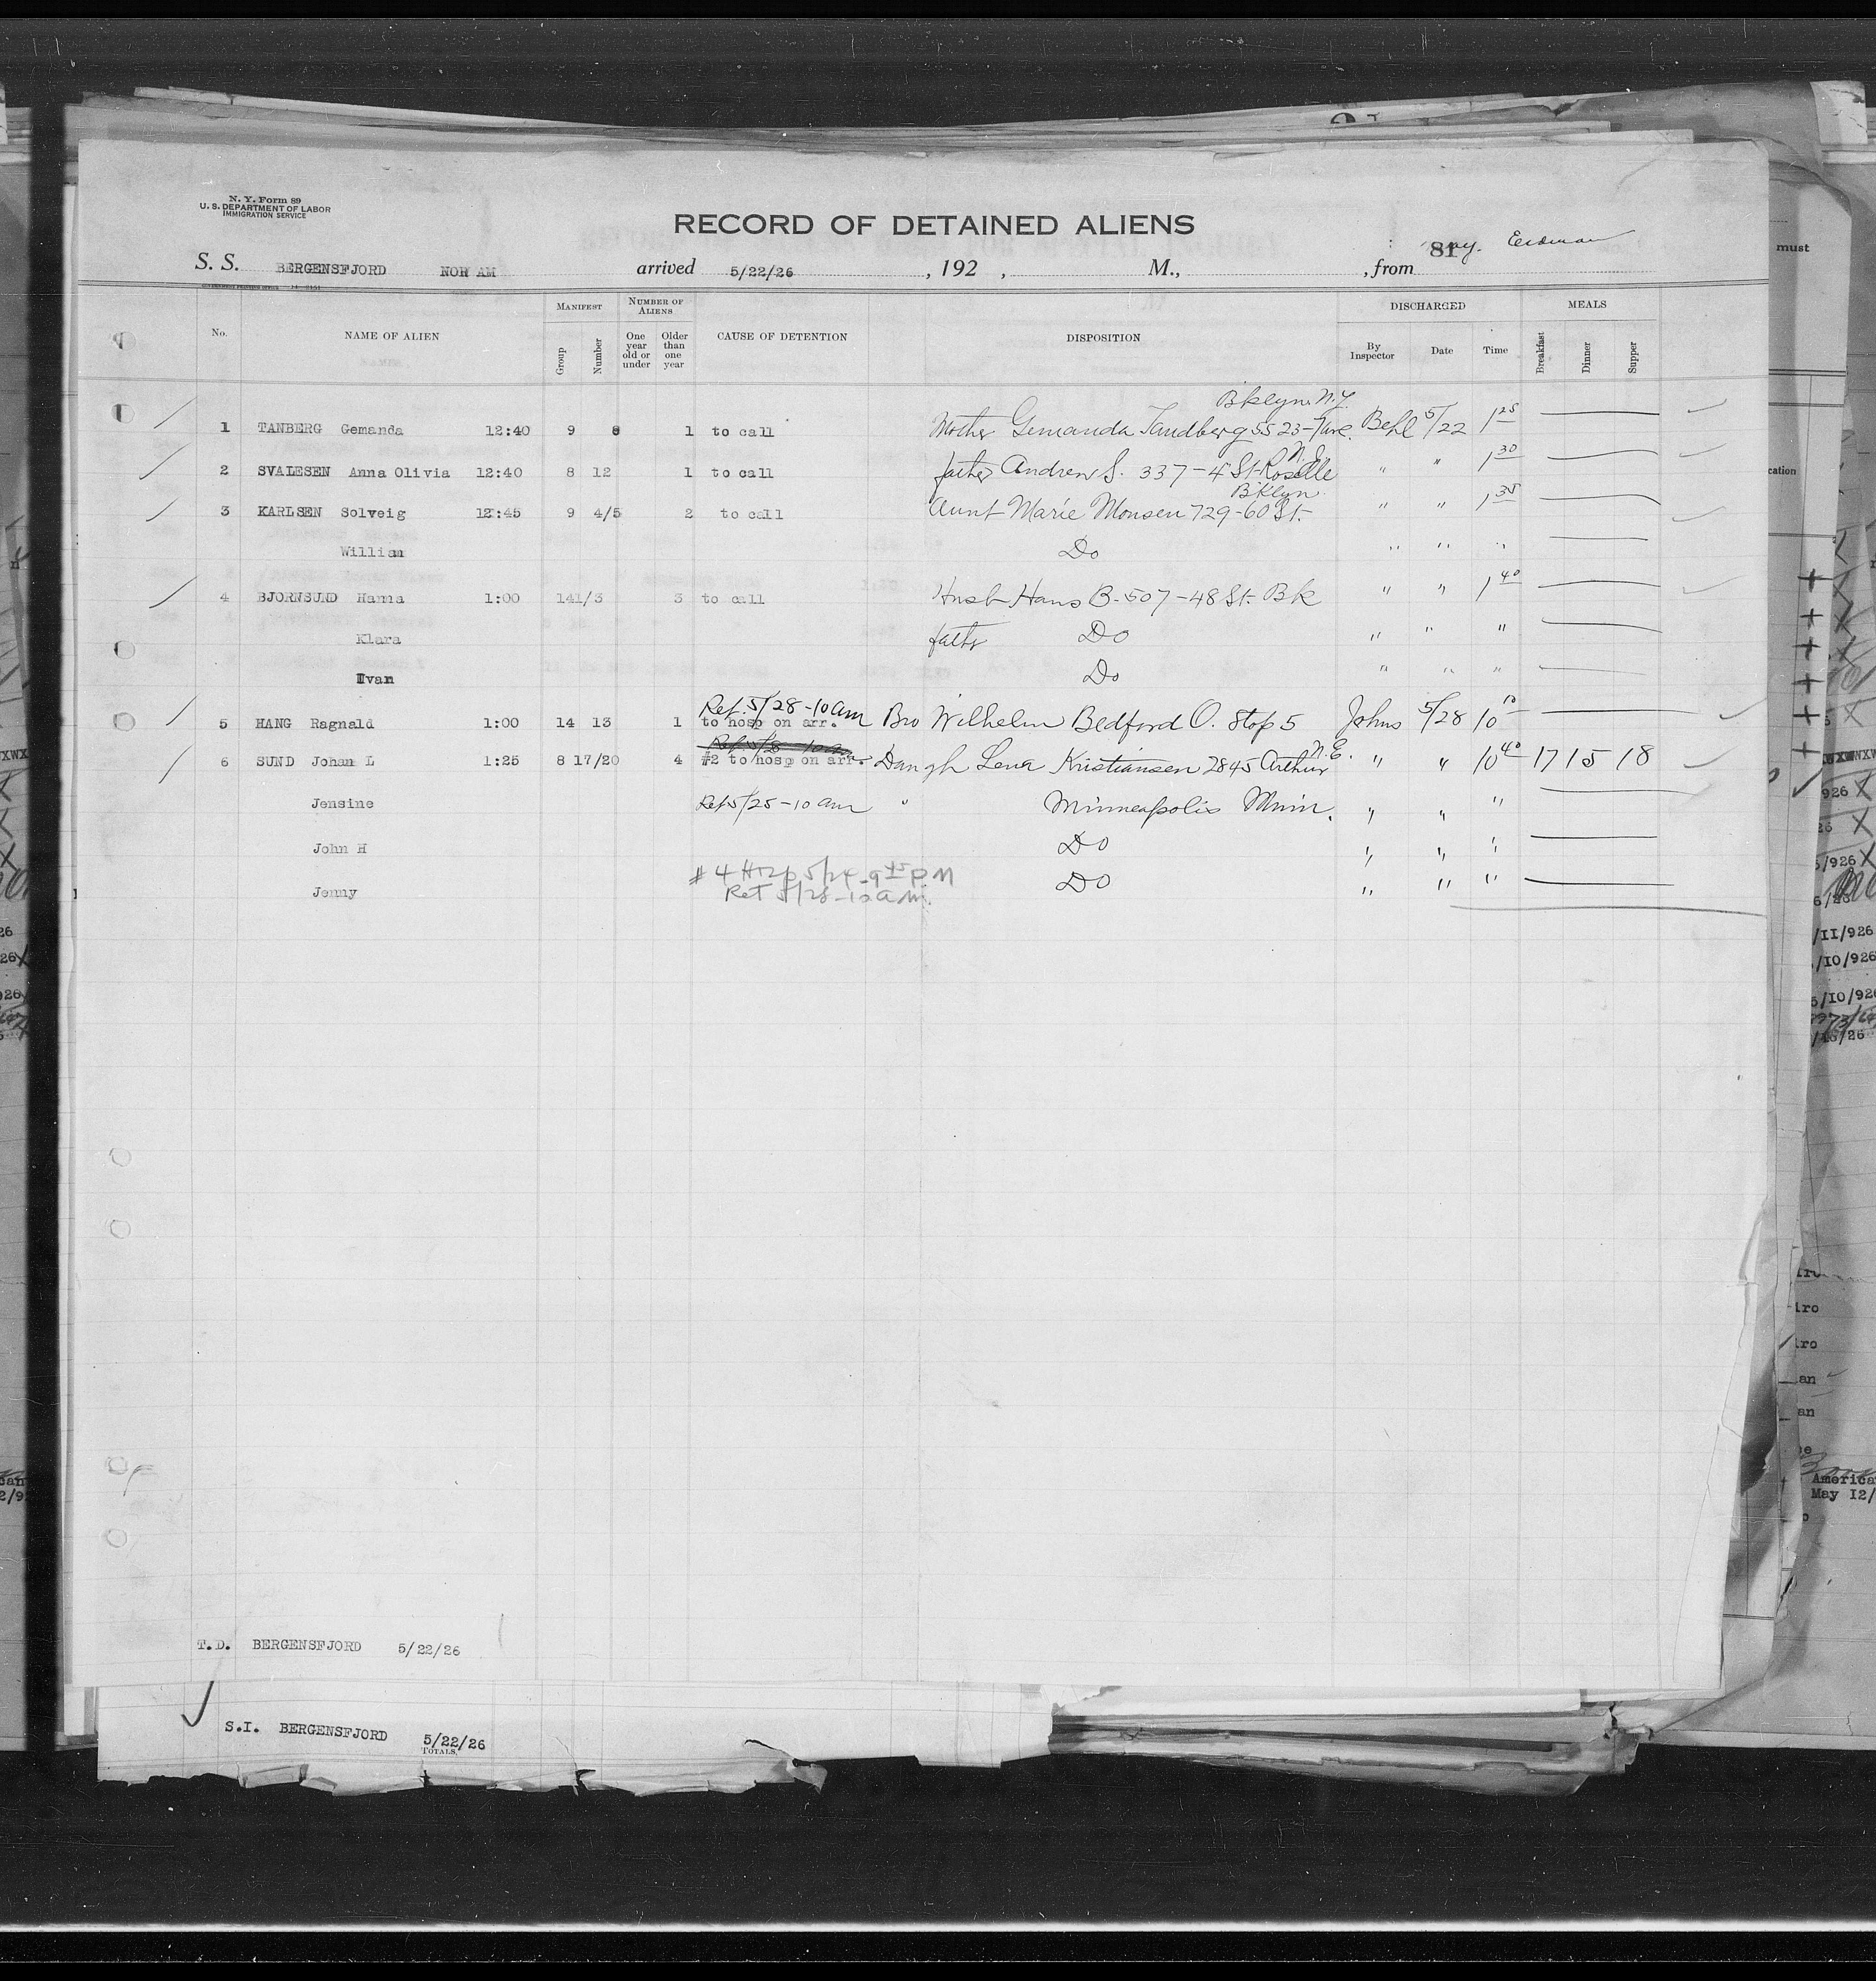 N. Y. Form 89
U. S. DEPARTMENT OF LABOR
IMMIGRATION SERVICE
RECORD OF DETAINED ALIENS
81
S. S. BERGENSFJORD NOR AM arrived 5/22/26, 192 , M., , from
No. NAME OF ALIEN MANIFEST Group Number NUMBER OF ALIENS One year old or under Older than one year CAUSE OF DETENTION DISPOSITION DISCHARGED By Inspector Date Time MEALS Breakfast Dinner Supper
Bklyn N.Y.
1 TANBERG Gemanda 12:40 9 8 1 to call Mother Gemanda Tandberg 5523-7 ave. Behl 5/22 1 25
N.J.
2 SVALESEN Anna Olivia 12:40 8 12 1 to call father Andrew S. 337-4 St. Roselle " " 1 30
Bklyn.
3 KARLSEN Solveig 12:45 9 4/5 2 to call Aunt Marie Monsen 729-60 St. " " 1 35
William Do " " "
4 BJORNSUND Hanna 1:00 14 1/3 3 to call Husb Hans B. 507-48 St. Bk " " 1 40
Klara father Do " " "
Ivan Do " " "
Ret. 5/28-10 am
5 HANG Ragnald 1:00 14 13 1 to hosp on arr. Bro Wilhelm Bedford O. Stop 5 Johns 5/28 10 10
N.E.
6 SUND Johan L 1:25 8 17/20 4 #2 to hosp on arr. Daugh Lena Kristiansen 2845 Arthur " " 10 40 17 15 18
Jensine Ret 5/25-10 am " Minneapolis Minn. " " "
John H Do " " "
#4 Hosp 5/24-9 15 PM
Jenny Ret 5/28-10 a.m. Do " " "
T.D. BERGENSFJORD 5/22/26
S.I. BERGENSFJORD 5/22/26
TOTALS,
must
cation
/11/926
/10/926
5/10/926
America
May 12/